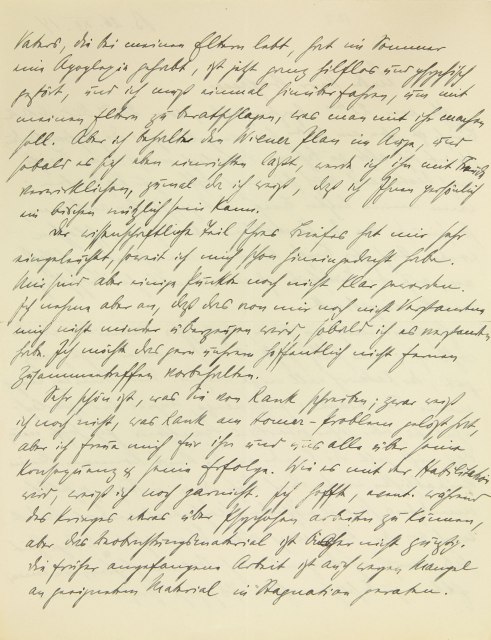 Vaters, die bei meinen Eltern lebt, hat im Sommer
eine Apoplexie gehabt, ist jetzt ganz hilflos und psychisch
gestört, und ich muß einmal hinüberfahren, um mit
meinen Eltern zu beratschlagen, was man mit ihr machen
soll. Aber ich behalte den Wiener Plan im Auge, und
sobald es sich eben einrichten läßt, werde ich ihn mit Freude
verwirklichen, zumal da ich weiß, daß ich Ihnen persönlich
ein bischen nützlich sein kann.
Der wissenschaftliche Teil Ihres Briefes hat mir sehr
eingeleuchtet, soweit ich mich schon hineingedacht habe.
Mir sind aber einige Punkte noch nicht klar geworden.
Ich nehme aber an, daß das von mir noch nicht Verstandene
mich nicht minder überzeugen wird, sobald ich es verstanden
habe. Ich möchte das gern unserm hoffentlich nicht fernen
Zusammentreffen vorbehalten.
Sehr schön ist, was Sie von Rank schreiben; zwar weiß
ich noch nicht, was Rank am Homer-Problem gelöst hat,
aber ich freue mich für ihn und uns alle über seine
Konsequenz u. seine Erfolge. Wie es mit der Habilitation
wird, weiß ich noch garnicht. Ich hoffe, event. während
des Krieges etwas über Psychosen arbeiten zu können,
aber das Beobachtungsmaterial ist bisher nicht günstig.
Die früher angefangene Arbeit ist auch wegen Mangel
an geeignetem Material in Stagnation geraten.